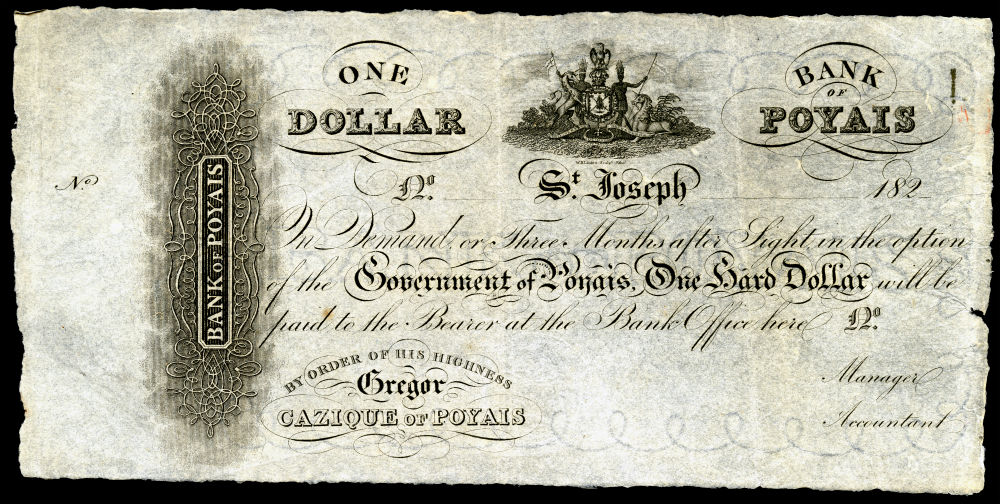 ONE
DOLLAR
BANK
OF
POYAIS
BANK OF POYAIS
No
No. St. Joseph 182
On Demand, or Three Months after Sight, in the option
of the Government of Poyais, One Hard Dollar will be
paid to the Bearer at the Bank Office here No.
BY ORDER OF HIS HIGHNESS
Gregor
CAZIQUE OF POYAIS
Manager
Accountant